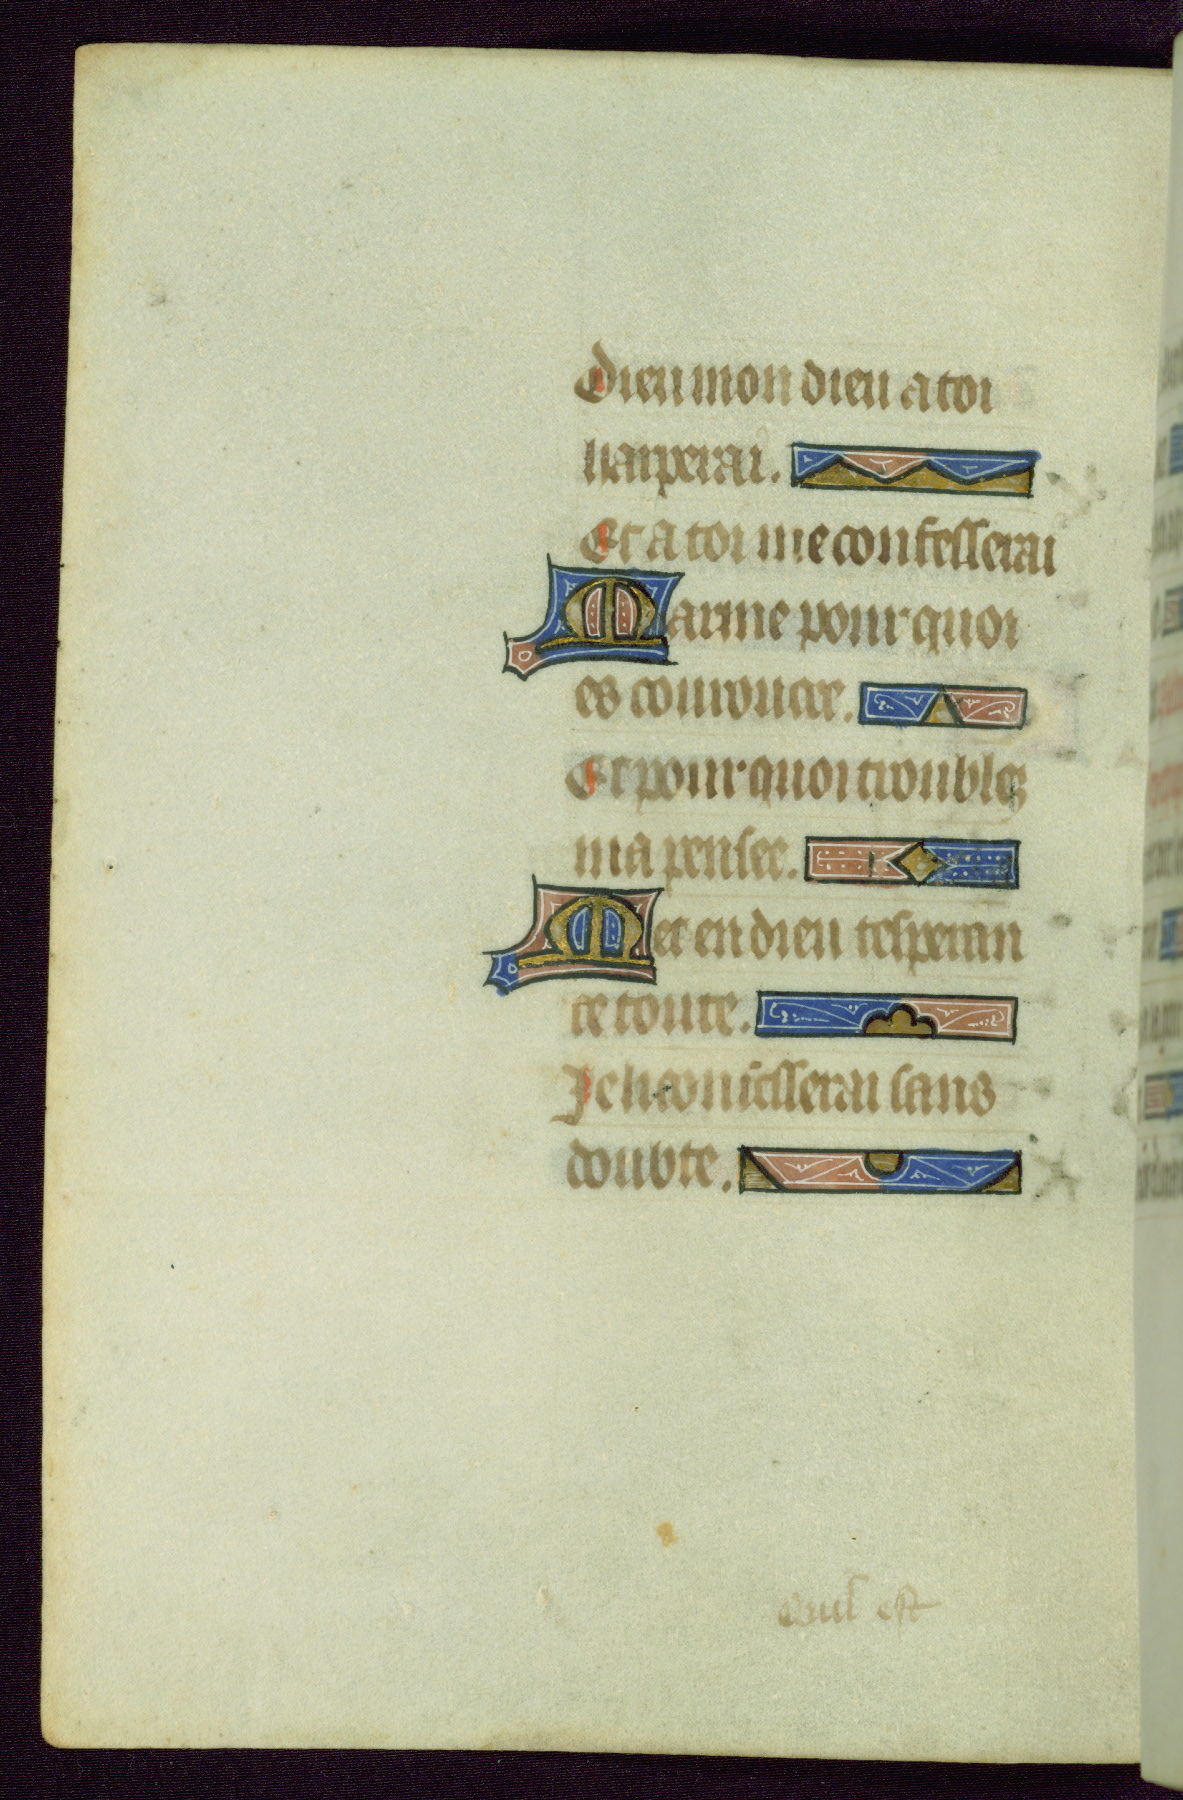 Dieu mon dieu a toi
harperai.
Et a toi me confesserai
Marme pour quoi
es courouciee.
Et pour quoi troubles
ma pensee.
Met en dieu tesperan
ce toute.
Je li confesserai sans
doubte.
Quil est